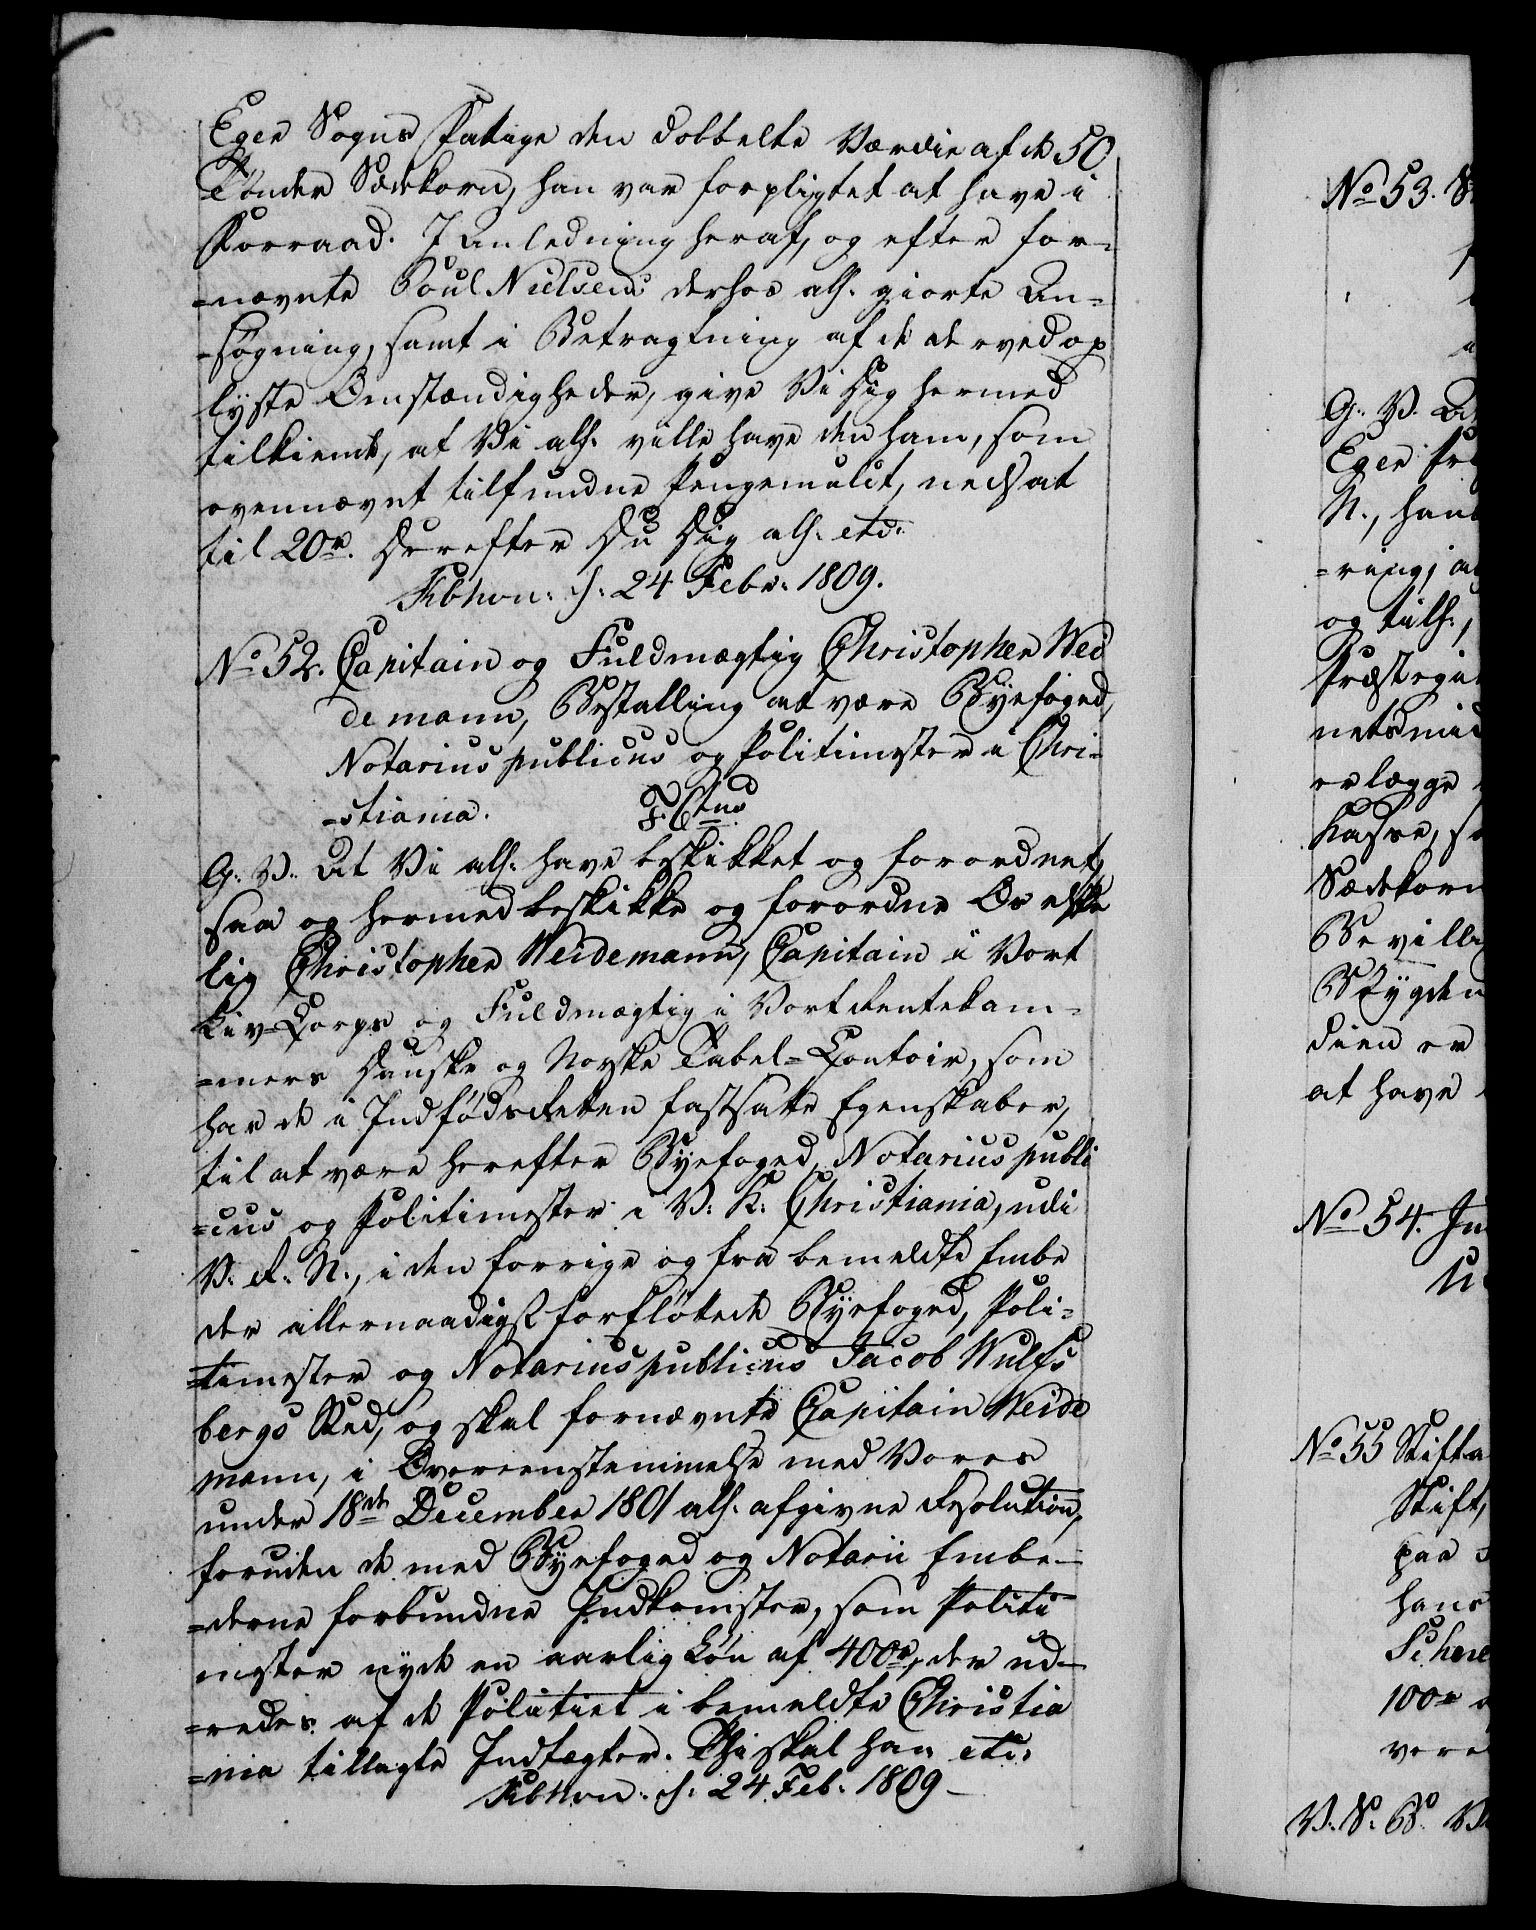 Eger Sogns Fattige den dobbelte Værdie af de 50
Tønder Sædekorn, han var forpligtet at have i
Forraad. I Anledning heraf, og efter for-
-nævnte Poul Nielsens derhos alh. giorte An-
-søgning, samt i Betragtning af de derved op
lyste Omstændigheder, give Vi Dig hermed
tilkiende, at Vi alh. ville have den ham, som
ovennævnt tilfundne Pengemulct, nedsat
til 20 r. Derefter Du Dig alh. etc:
Kbhvn: d: 24 Febr: 1809.
No 52. Capitain og Fuldmægtig Christopher Wei
demann, Bestalling at være Byefoged,
Notarius publicus og Politimester i Chri-
-stiania.
G: V: At Vi alh. have beskikket og forordnet,
saa og hermed beskikke og forordne Os elske
lig Christopher Weidemann, Capitain i Vort
Liv-Corps og Fuldmægtig i Vort Rentekam-
-mers Danske og Norske Tabel-Contoir, som
har de i Indfødsretten fastsatte Egenskaber,
til at være herefter Byefoged, Notarius publi
-cus og Politimester i V: K: Christiania, udi
V. R. N., i den forrige og fra bemeldte Embe
der allernaadigst forfløttede Byefoged, Poli-
-timester og Notarius publicus Jacob Wulfs
bergs Sted, og skal fornævnte Capitain Weide
mann, i Overeenstemmelse med Vores
under 18de December 1801 alh. afgivne Resolution,
foruden de med Byefoged og Notarii Embe-
-derne forbundne Indkomster, som Politi
mester nyde en aarlig Løn af 400 r, der ud-
-redes af de Politiet i bemeldte Christia
-nia tillagte Indtægter. Thi skal han etc:
Kbhvn: d: 24 Feb: 1809-
No 53.
G: V. At
Eger
N., hans
-ring, at
og tilh.,
Præstegie
erlægge
Kasse, s
Sædekorn
Bevill
Bygden
dien er
at have
No 54.
No 55 Stifta
Stift,
paa
hans
100 r
V. S. B. V